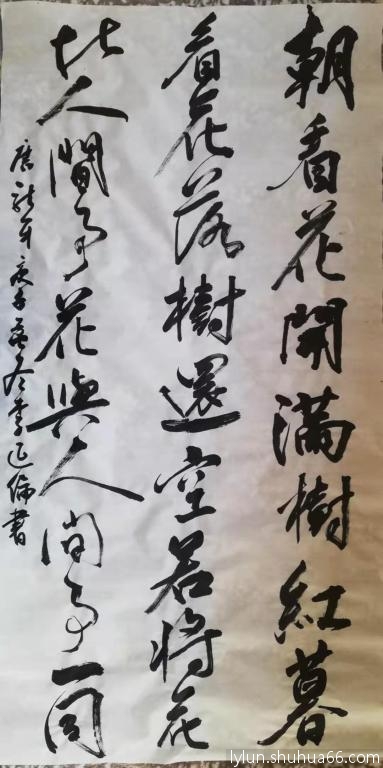 朝看花開滿樹紅暮
看花落樹還空若將花
比人間事花與人間事一同
唐龍牙庚子 冬李 書
lylun.shuhua66.com